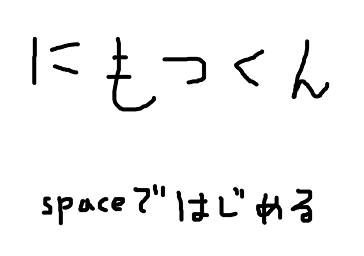 にもつくん
spaceではじめる